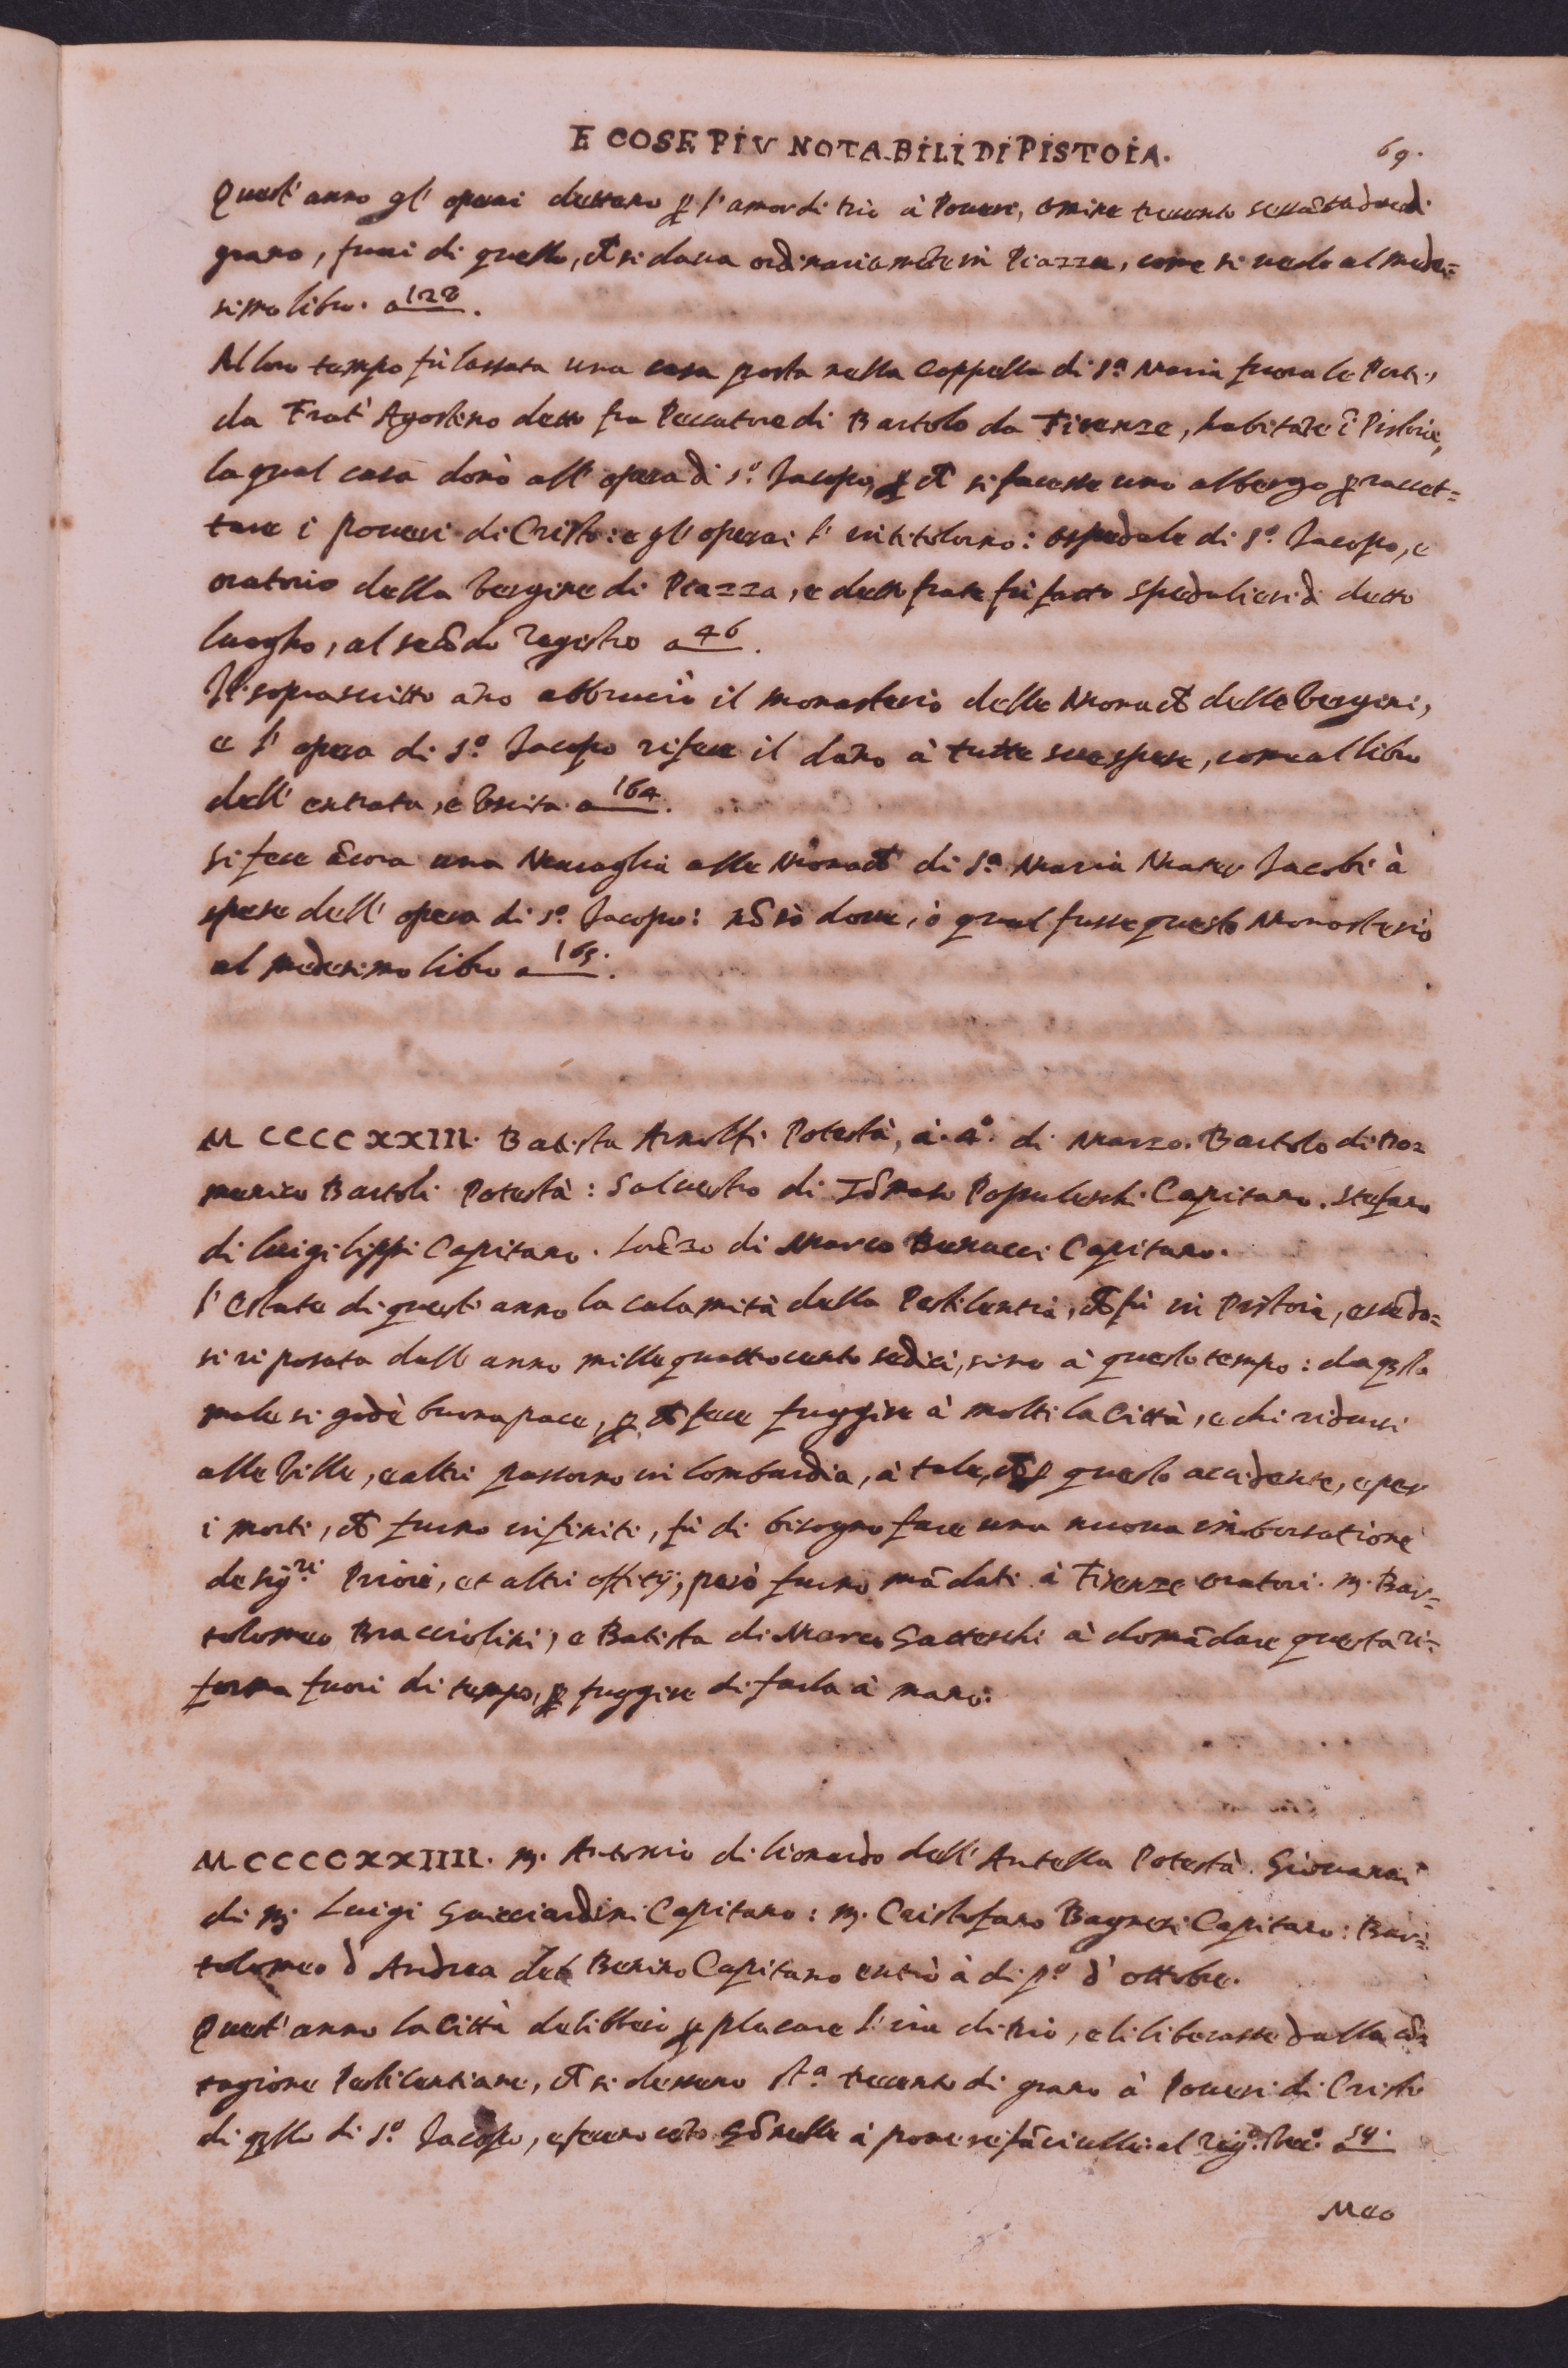 E COSE PIV NOTABILI DI PISTOIA. 69.
Quest' anno gl' operai dettano p l' amor di Dio à Poueri, omine trecento sessātadue di
grano, fuori di quello, ch si daua ordinariamēte in Piazza, come si uede al mede=
simo libro. a 128.
Al loro tempo fù lassata una casa posta nella Cappella di S.ª Maria fuora le Porte,
da Frat' Agostino detto fra Peccatore di Bartolo da Firenze, habitāte ī Pistoia,
la qual casa donò all' opera di S.º Jacopo, p ch si facesse uno albergo p raccet=
tare i poueri di Cristo: e gl' operai l' intitolorno: ospedale di S.º Jacopo, e
oratorio della Vergine di Piazza, e detto frate fù fatto spedalieri di detto
luogho, al secōdo Registro a 46.
Il soprascritto año abbruciò il monasterio delle Monach delle Vergini,
e l' opera di S.º Jacopo rifece il dāno à tutte sue spese, come al libro
dell' entrata, e Vscita a 164.
Si fece ācora una Muraglia alle Monach di S.ª Maria Mater Jacobi à
spese dell' opera di S.º Jacopo: nō sò doue, ò qual fusse questo Monasterio
al medesimo libro a 165.
M CCCC XXIII. Batista Arnolfi Potestà, à. 4º. di Marzo. Bartolo di Do=
menico Bartoli Potestà: Saluestro di Tōmaso Popoleschi Capitano. Stefano
di Luigi Lippi Capitano. Lorēzo di Marco Benucci Capitano.
L' Estate di quest' anno la calamità della Pestilentia, ch fù in Pistoia, essēdo=
si riposata dall' anno mille quattrocento sedici, sino à questo tempo: da qsto
male si godè buona pace, p ch fece fuggire à molti la Città, e chi ridursi
alle Ville, e altri passorno in Lombardia, à tale, ch p questo accidente, e per
i morti, ch furno infiniti, fù di bisogno fare una nuoua imborsatione
de sig.ri Priori, et altri offitij, però furno mādati à Firenze oratori. m. Bar=
tolomeo Bracciolini, e Batista di Marco Gatteschi à domādare questa ri=
forma fuori di tempo, p fuggire di farla à mano:
M CCCC XXIIII. m. Antonio di Lionardo dell' Antella Potestà. Giouanni
di m. Luigi Guicciardini Capitano: m. Cristofano Bagnesi Capitano: Bar=
tolomeo d' Andrea del Benino Capitano entrò à di p.º d' ottobre.
Quest' anno la Città deliberò p placare l' ira di Dio, e li liberasse dalla cō=
tagione Pestilentiare, ch si dessero St.ª trecento di grano à Poueri di Cristo
di qllo di S.º Jacopo, e fecero Gōnelle à pouere fāciulle: al Reg.º a 54.
Meo